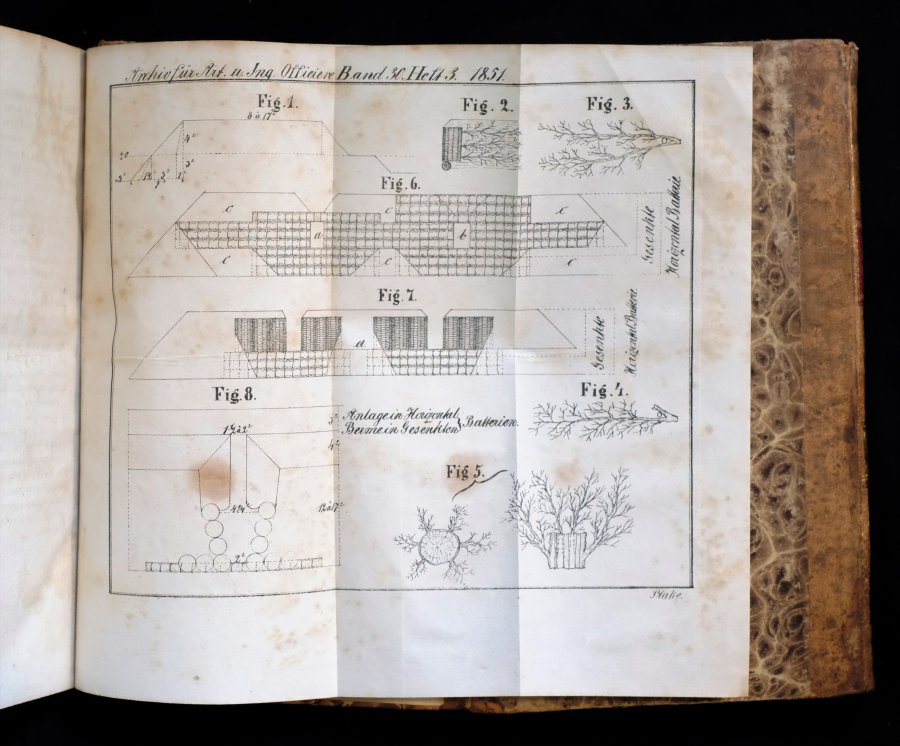 Archiv für Art. u. Ing. Officiere Band 30. Heft 3. 1851.
Fig. 1. Fig. 2. Fig. 3.
8 à 17'
4'
20
5'
5' 1½' 3' 1'
Fig. 6.
c c c
a b
c c c
Gesenkte
Horizontal. Batterie
Fig. 7.
a
Gesenkte
Horizontal. Batterie
Fig. 8. Fig. 4.
3' Anlage in Horizontal
Berme in Gesenkten } Batterien.
4'
Fig 5.
2'